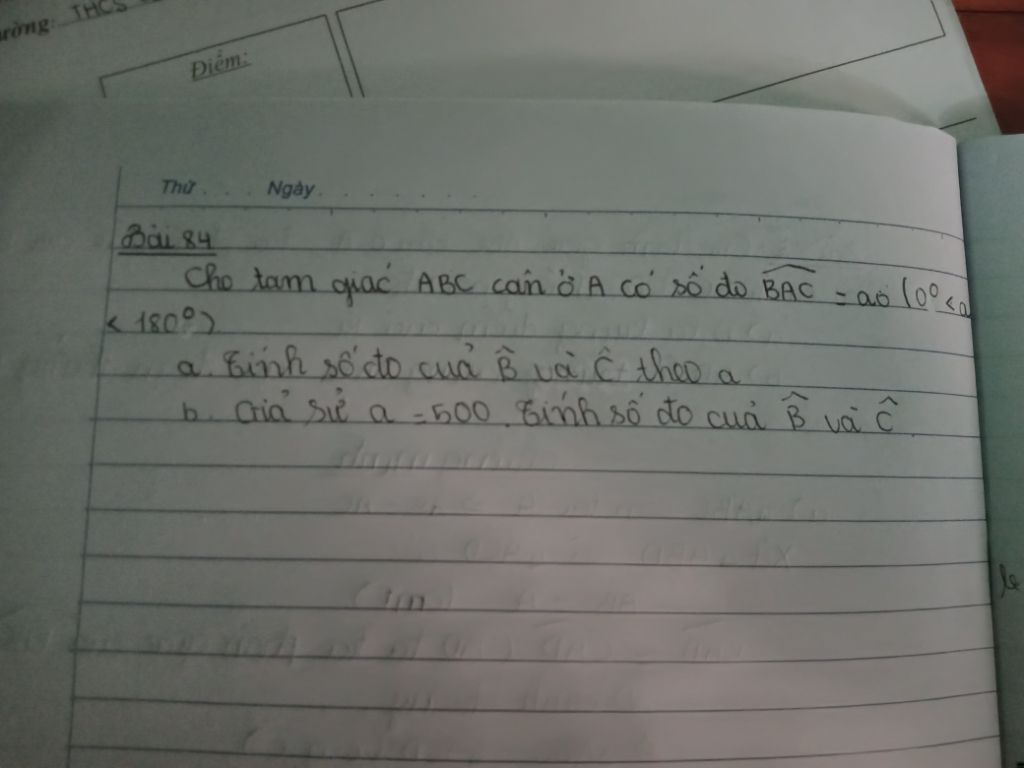 ường: THCS
Điểm:
Thứ . . . . Ngày . . . . . . . .
Bài 84
Cho tam giác ABC cân ở A có số đo BAC = ao (0° < a
< 180°)
a. Tính số đo cuả B̂ và Ĉ theo a
b. Giả sử a = 500. Tính số đo cuả B̂ và Ĉ